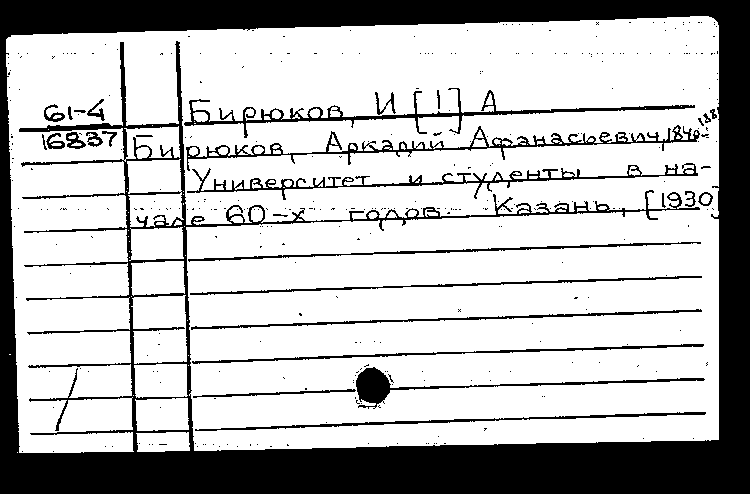 61-4
16837
Бирюков, И [!] А
Бирюков, Аркадий Афанасьевич, 1840-
Университет и студенты в на-
чале 60-х годов. Казань, [1930]